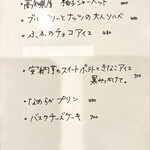 ・高知県産 柚子シャーベット
・ブルーベリーとナッツの大人ソルベ
・ふ、ふ、のチョコアイス 480
・安納芋のスイートポテトときなこアイス
黒みつかけて。
・なめらかプリン
・バスクチーズケーキ